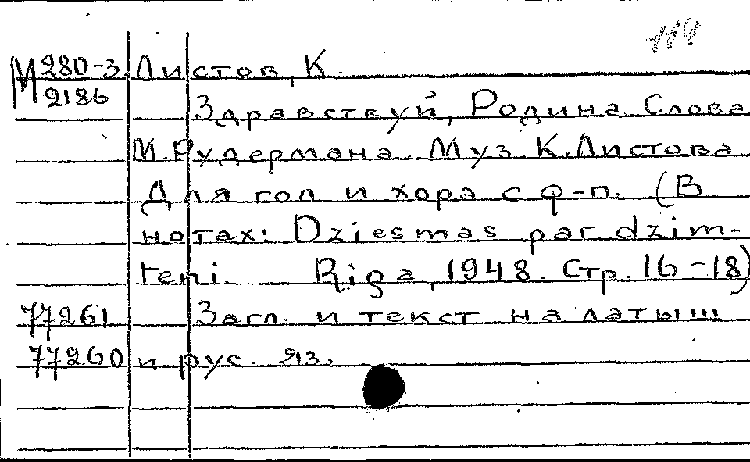 М 280-3 Листов, К.
2186 Здравствуй, Родина. Слова
М. Рудермана. Муз. К. Листова.
Для гол. и хора с ф-п. (В
нотах: Dziesmas par dzim-
teni. Riga, 1948. Стр. 16-18)
77261 Загл. и текст на латыш.
77260 и рус. яз.